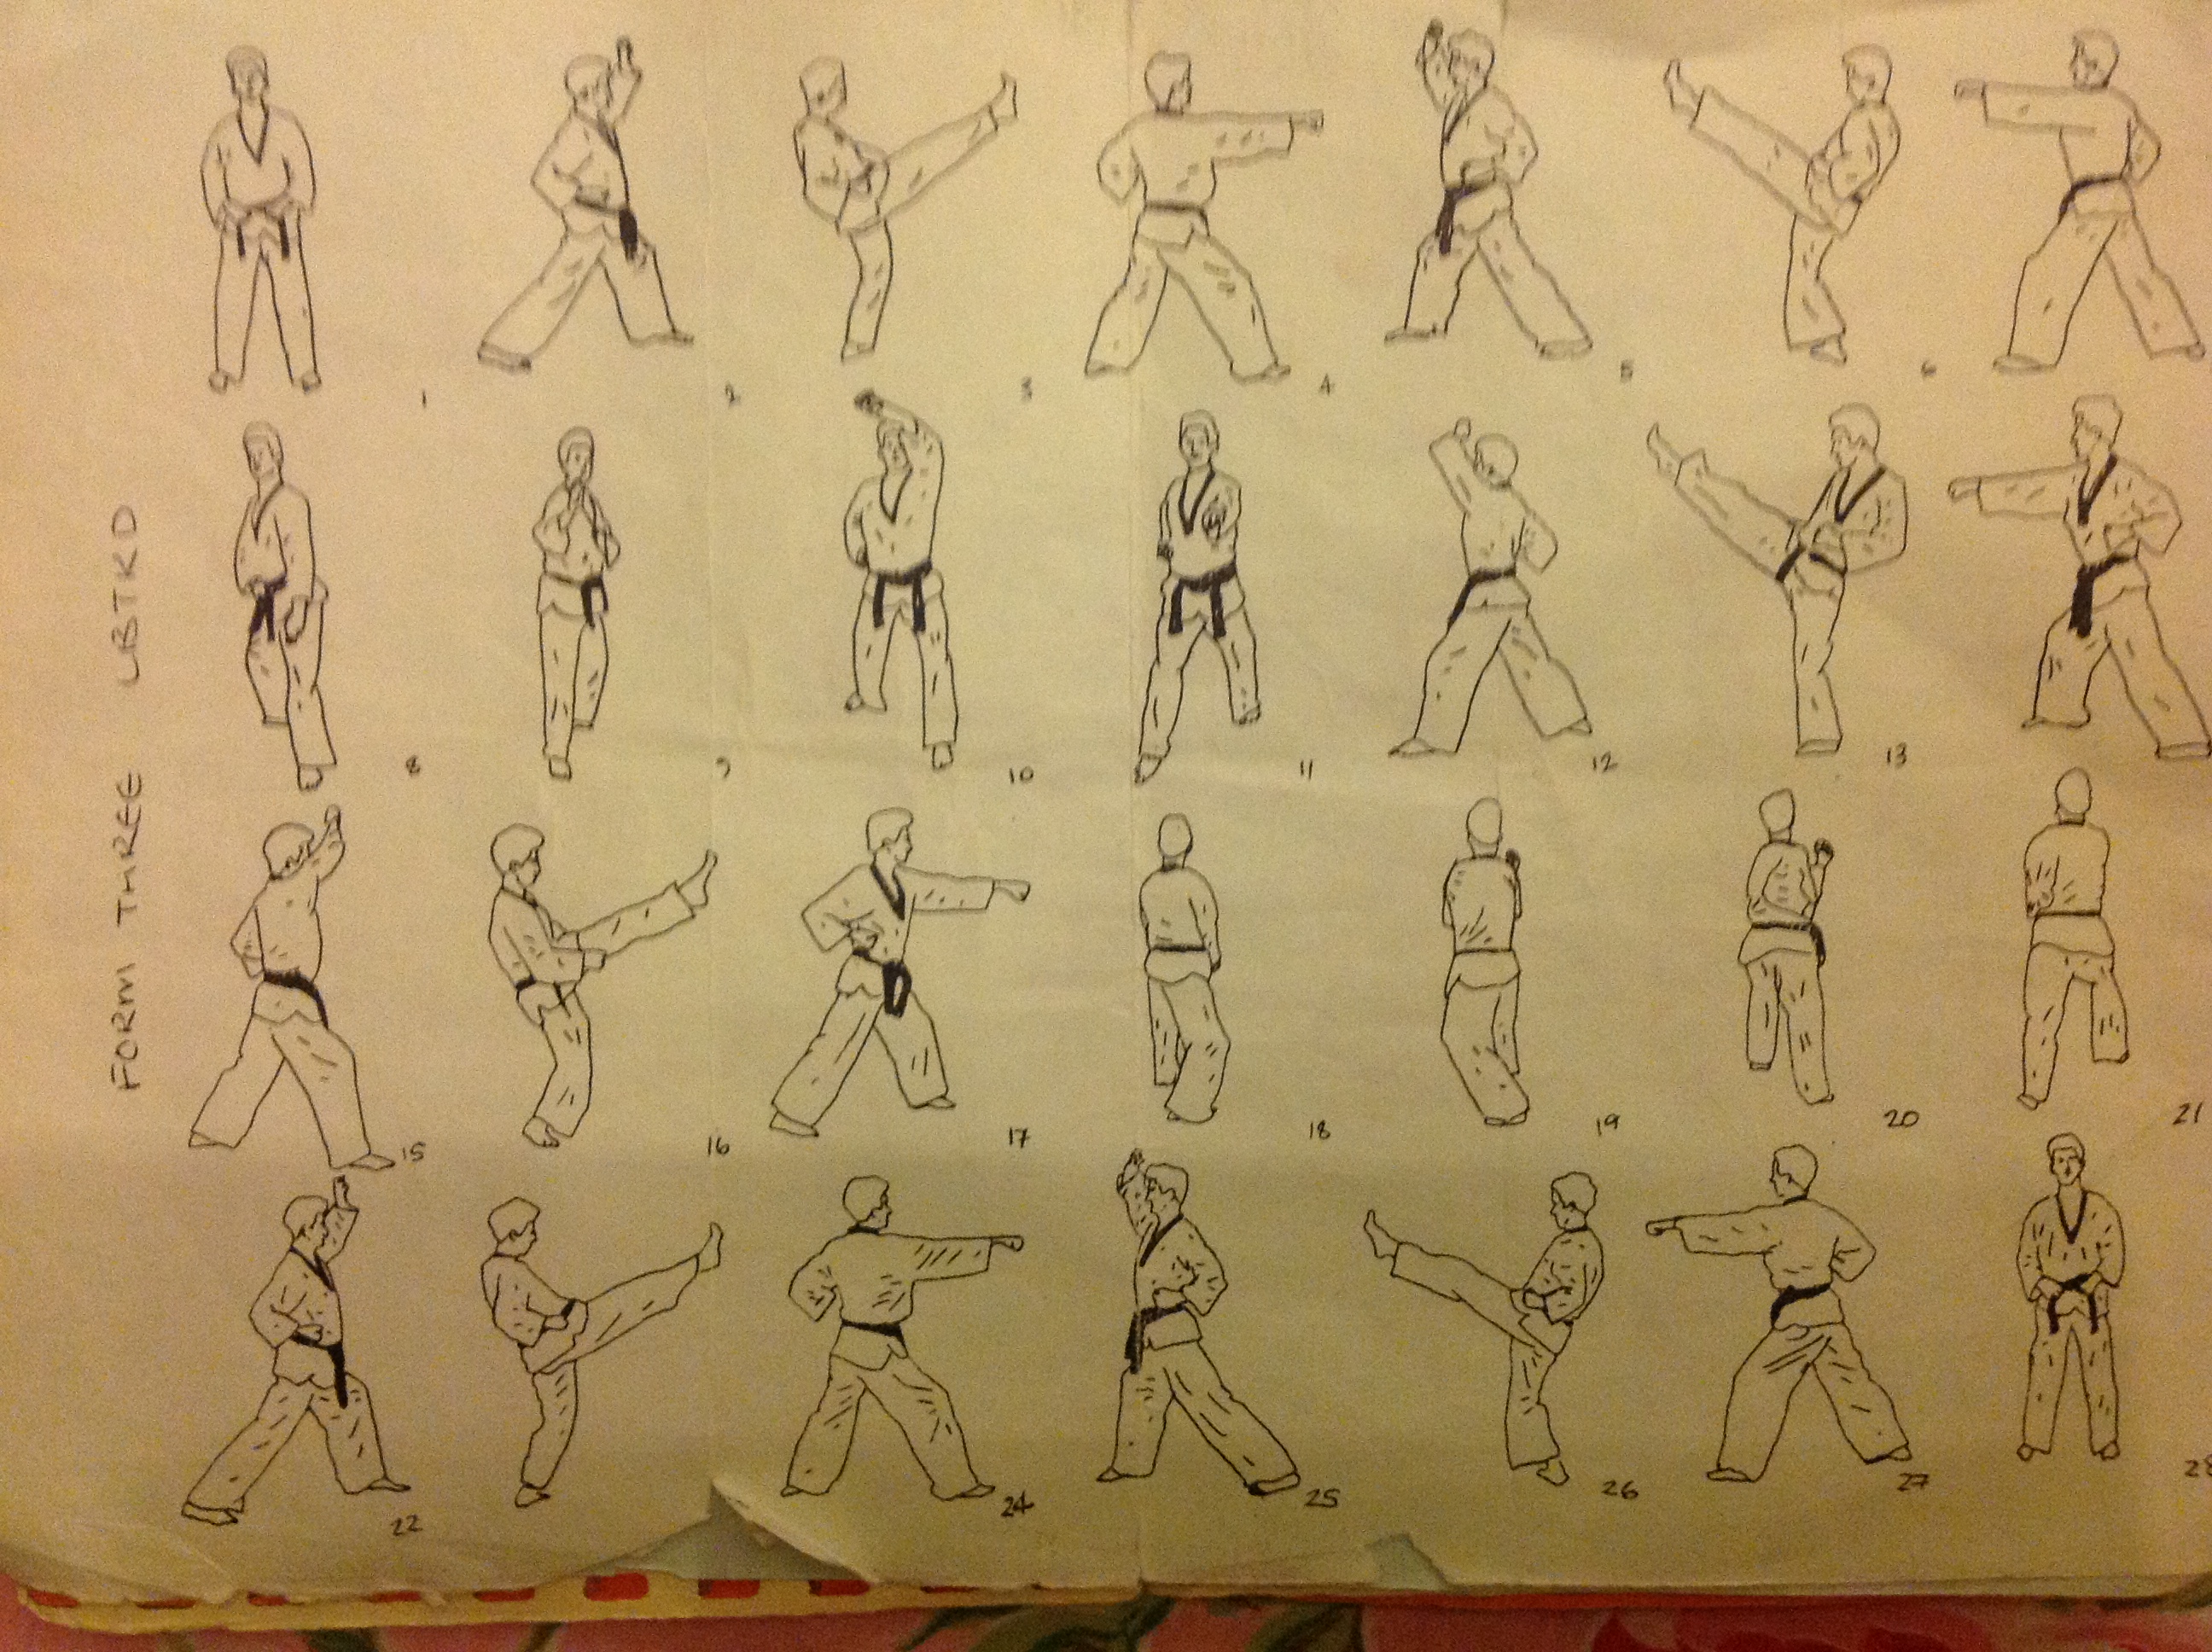 FORM THREE LBTKD
1
2
3
4
5
6
8
9
10
11
12
13
15
16
17
18
19
20
21
22
24
25
26
27
28